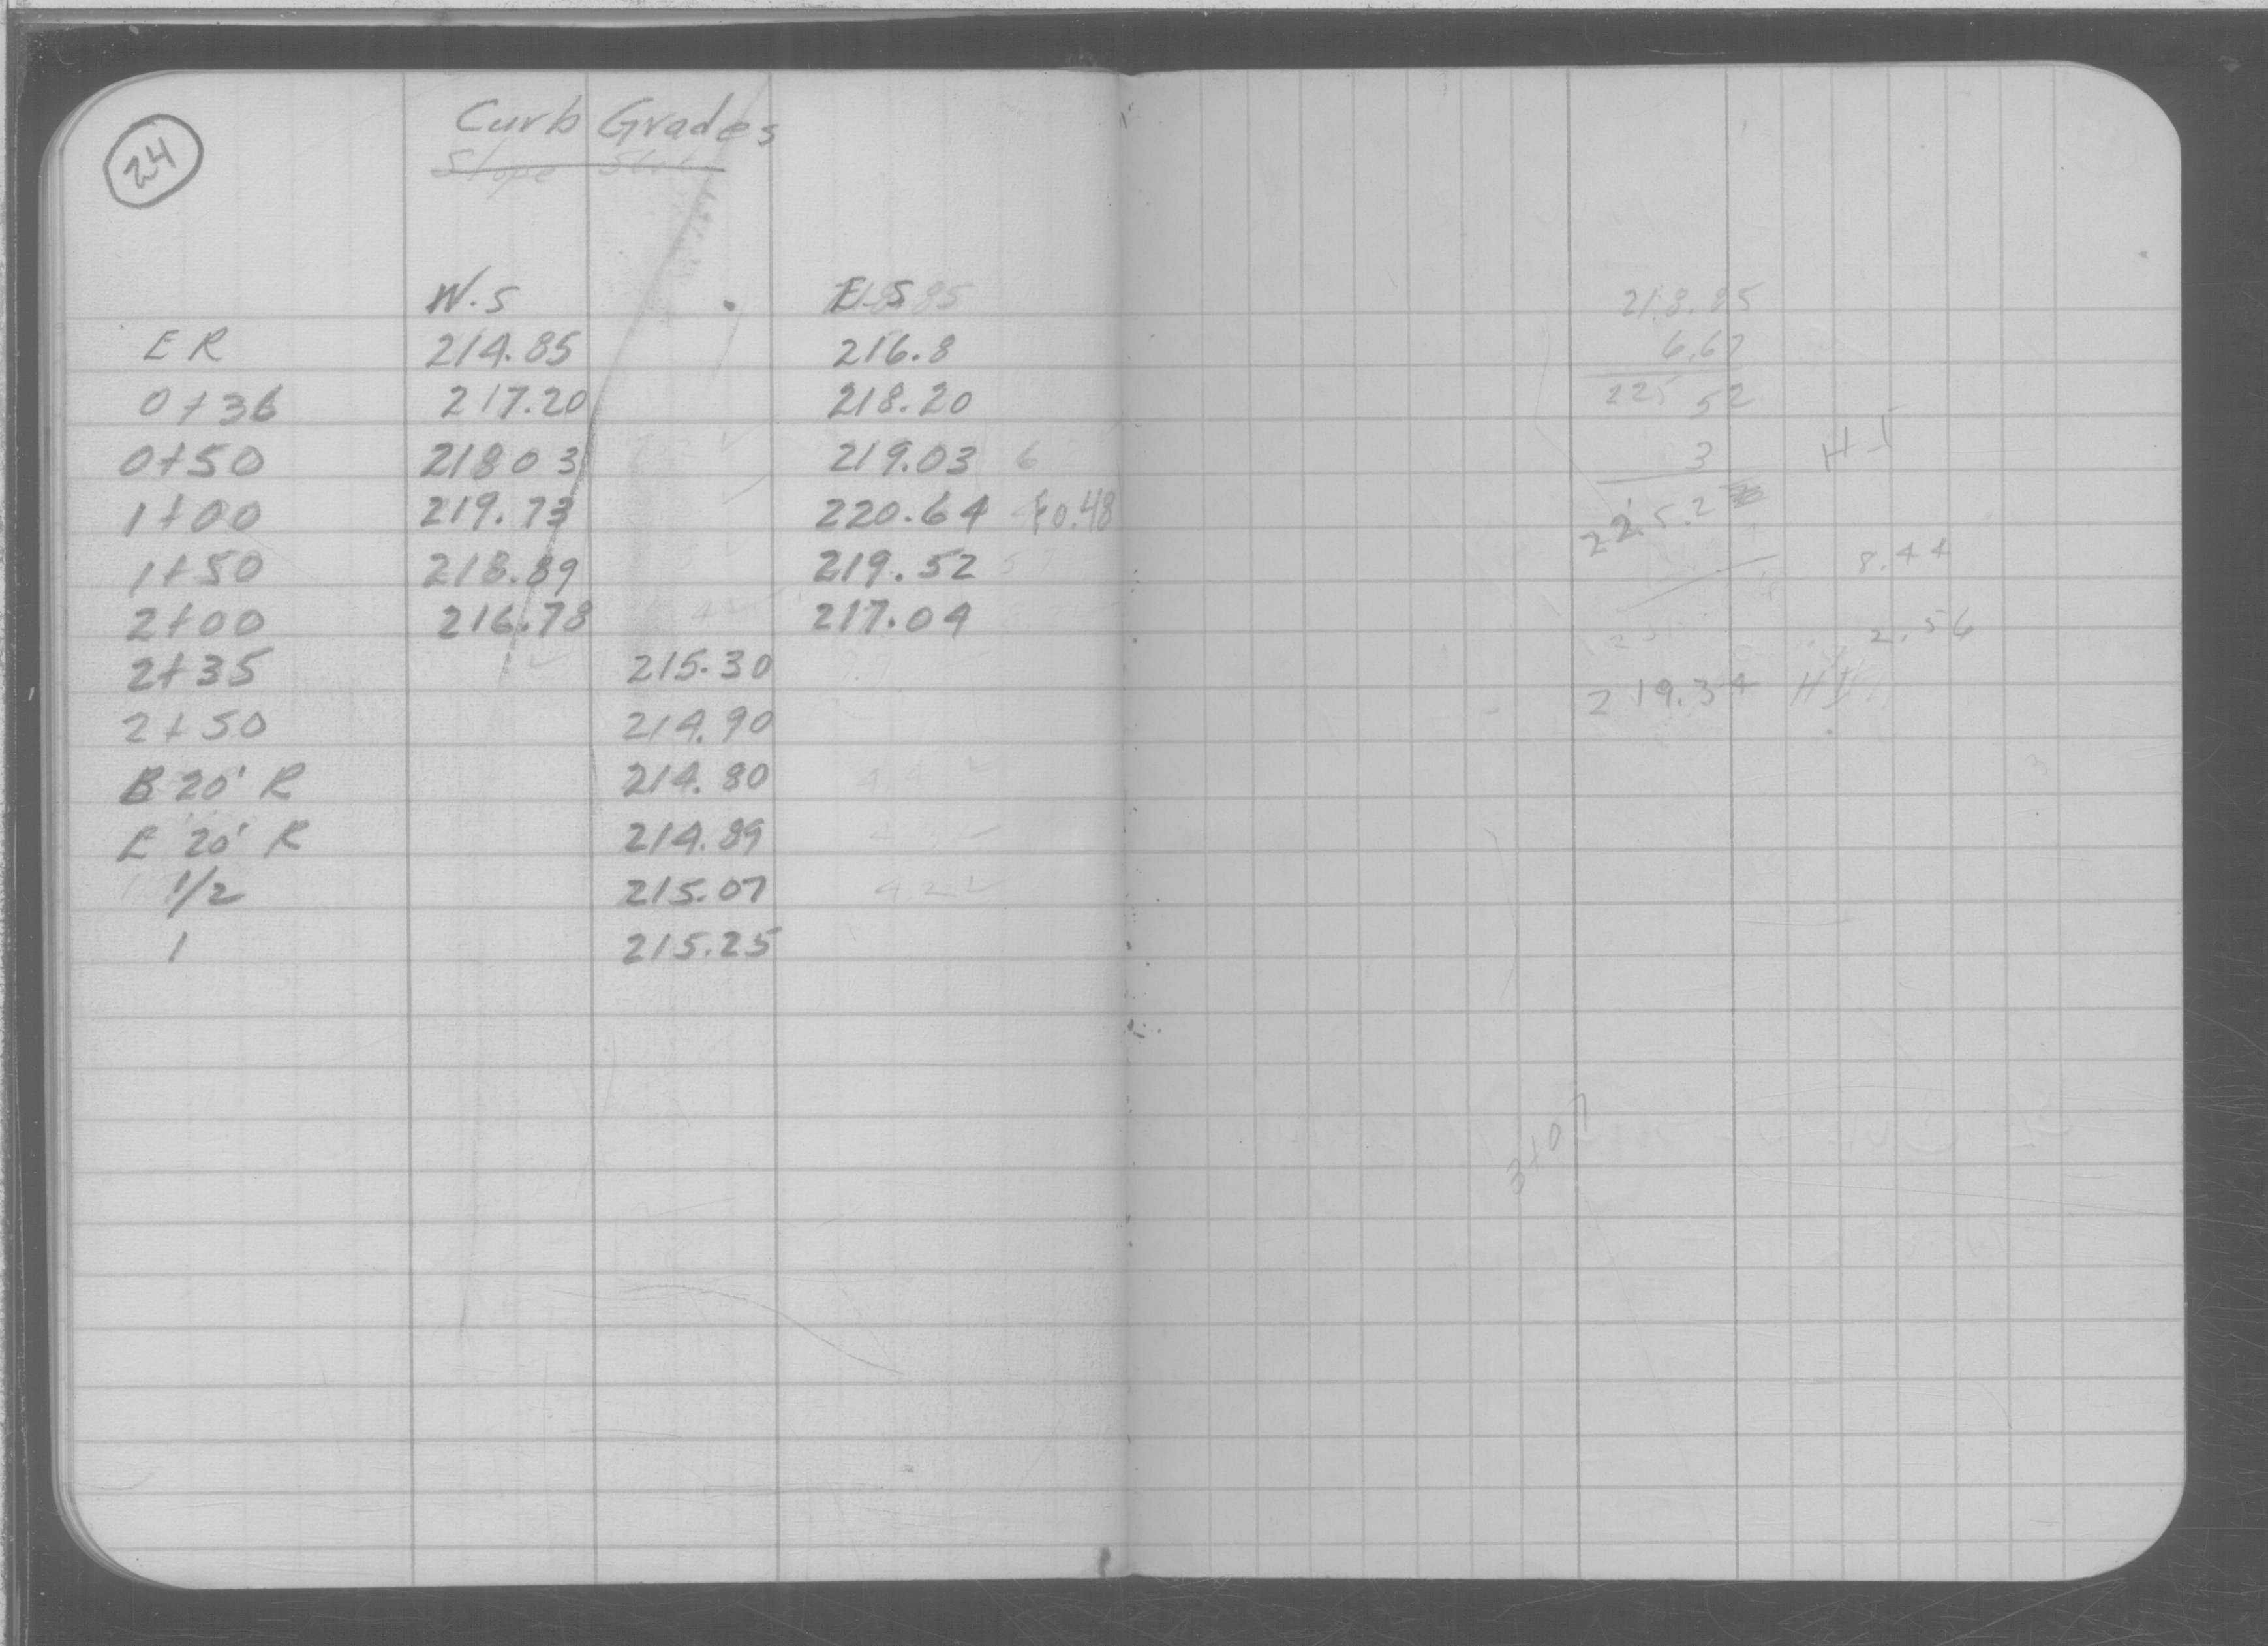 24
Curb Grades
Slope
W.S E.S
E R 214.85 216.8
0+36 217.20 218.20
0+50 218 03 219.03 6
1+00 219.73 220.64 +0.48
1+50 218.89 219.52
2+00 216.78 217.04
2+35 215.30
2+50 214.90
B 20' R 214.80
E 20' R 214.89
1/2 215.07 422
1 215.25
218.85
6.67
225 52
3 H I
225.2
8.44
2.56
219.34 HI
3+07